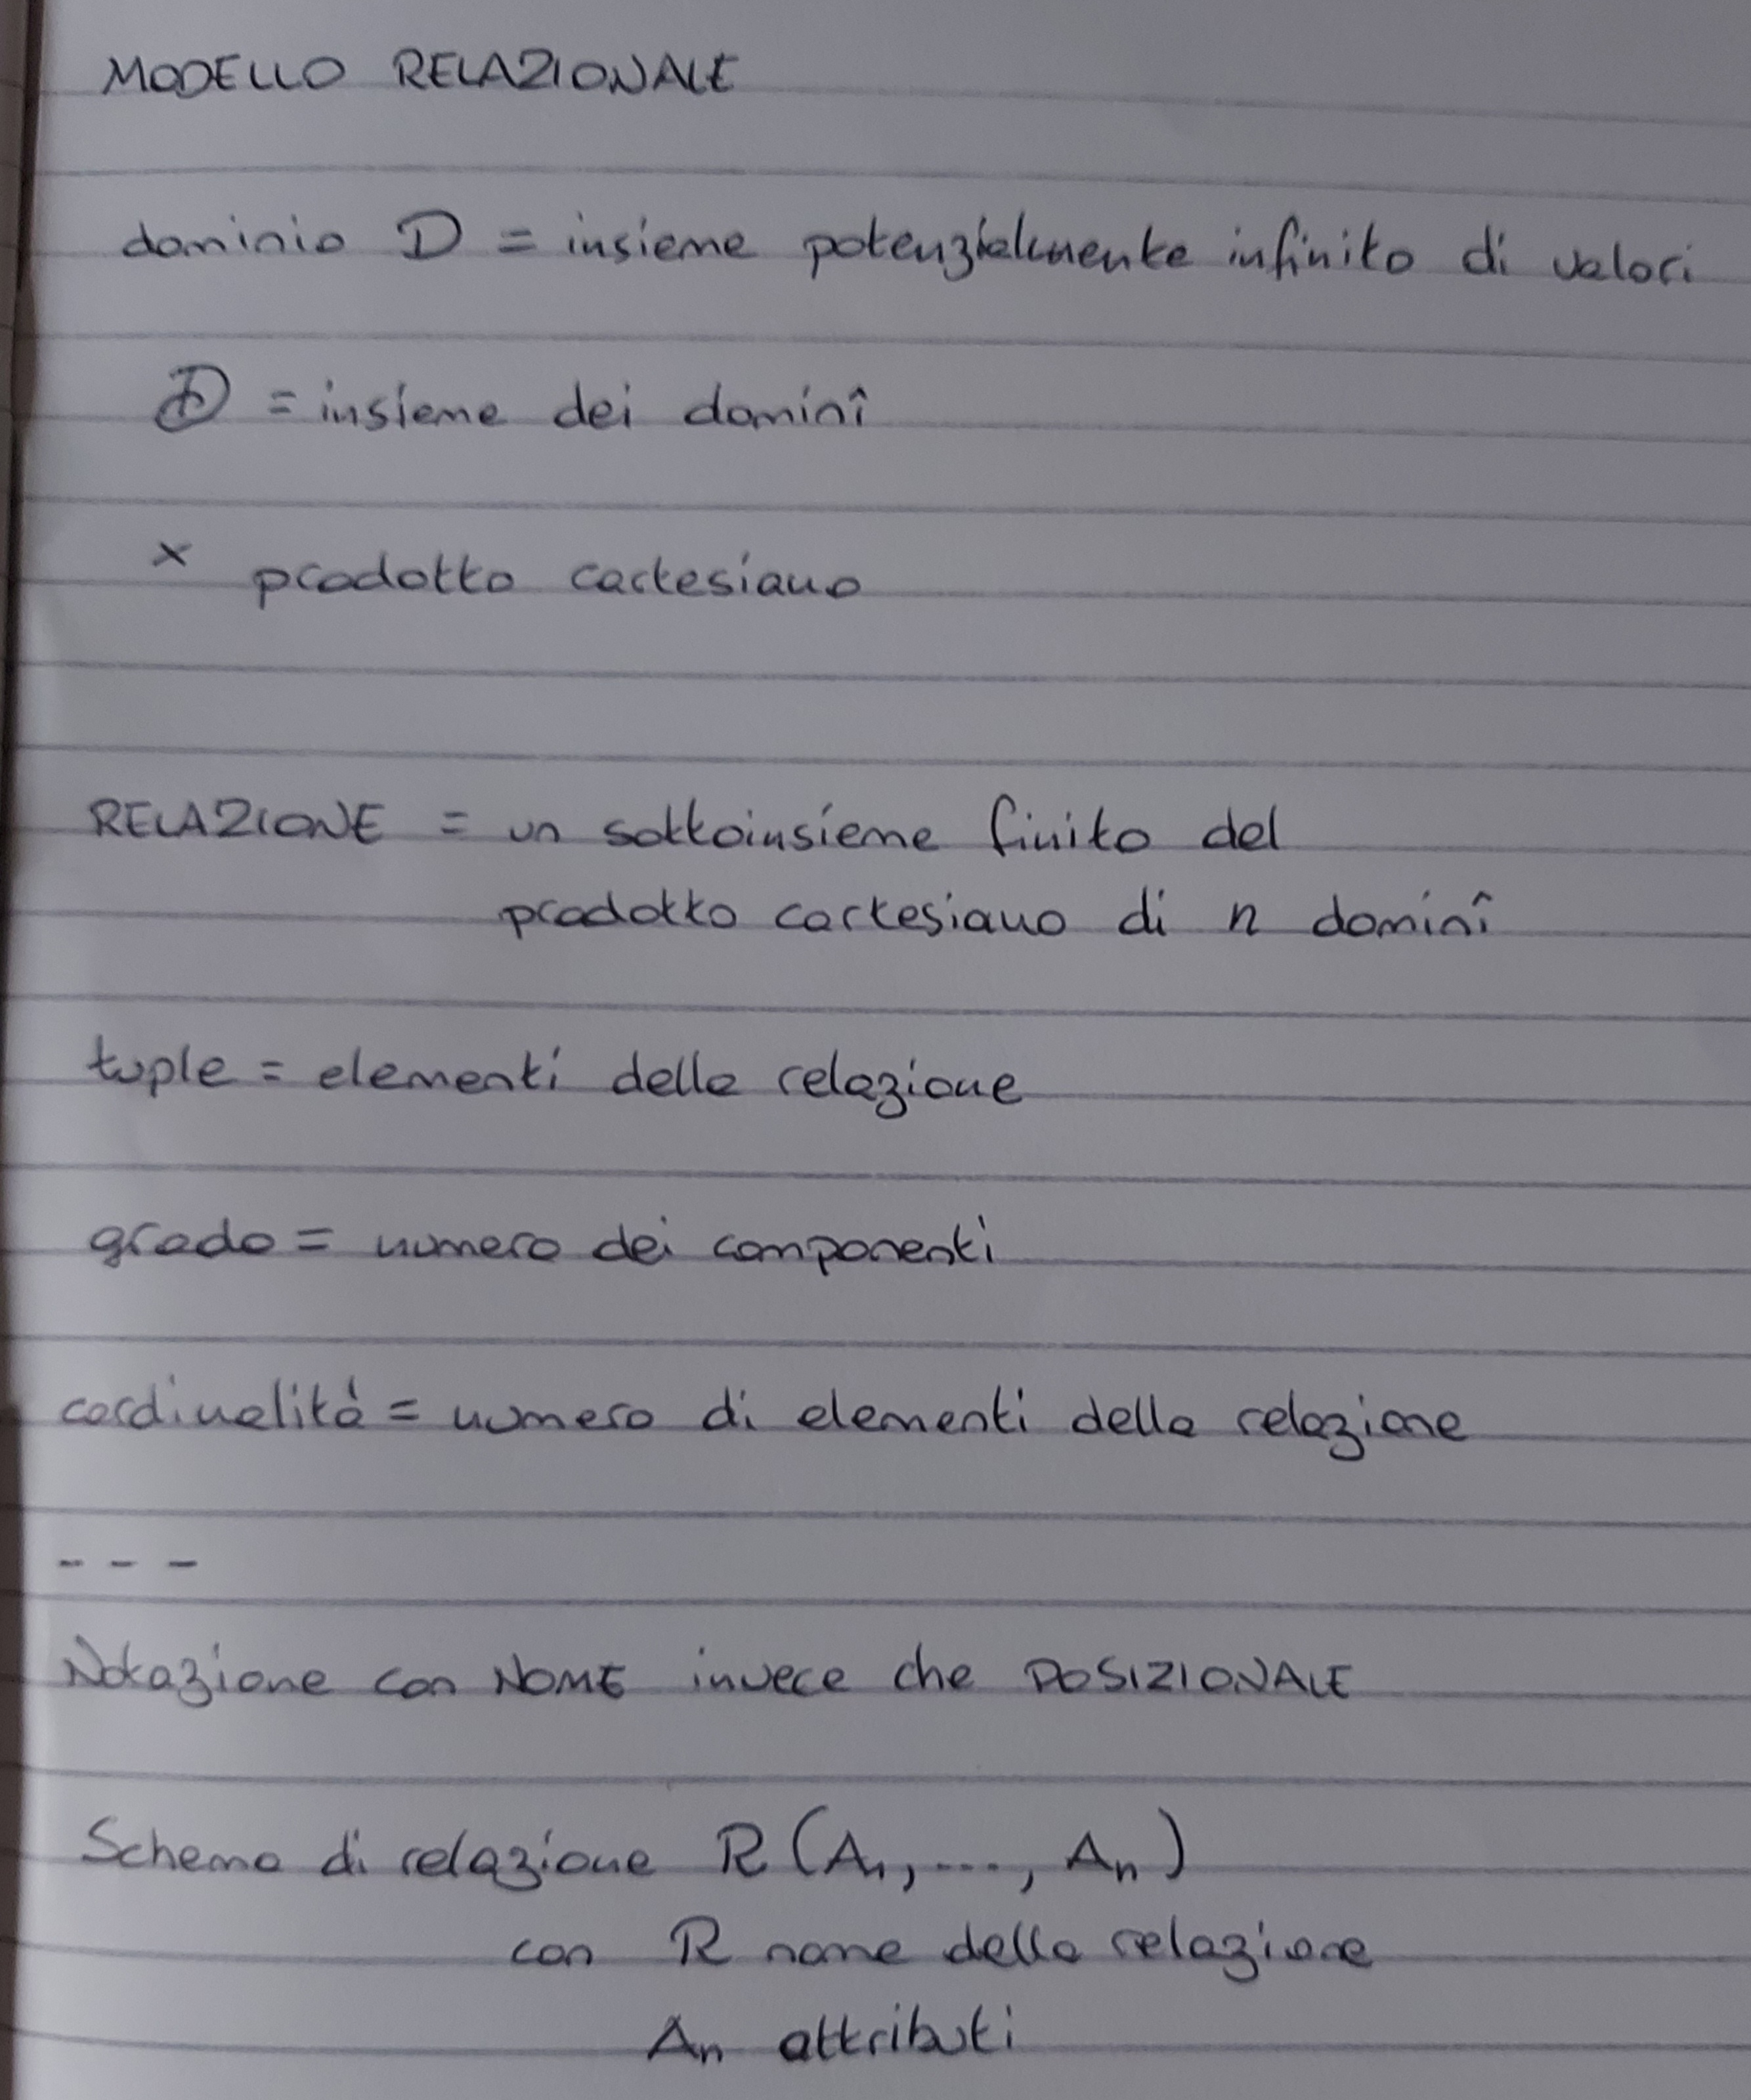 MODELLO RELAZIONALE
dominio D = insieme potenzialmente infinito di valori
𝒟 = insieme dei dominî
× prodotto cartesiano
RELAZIONE = un sottoinsieme finito del
prodotto cartesiano di n dominî
tuple = elementi della relazione
grado = numero dei componenti
cardinalità = numero di elementi della relazione
- - -
Notazione con NOME invece che POSIZIONALE
Schema di relazione R (A₁, ..., Aₙ)
con R nome della relazione
Aₙ attributi